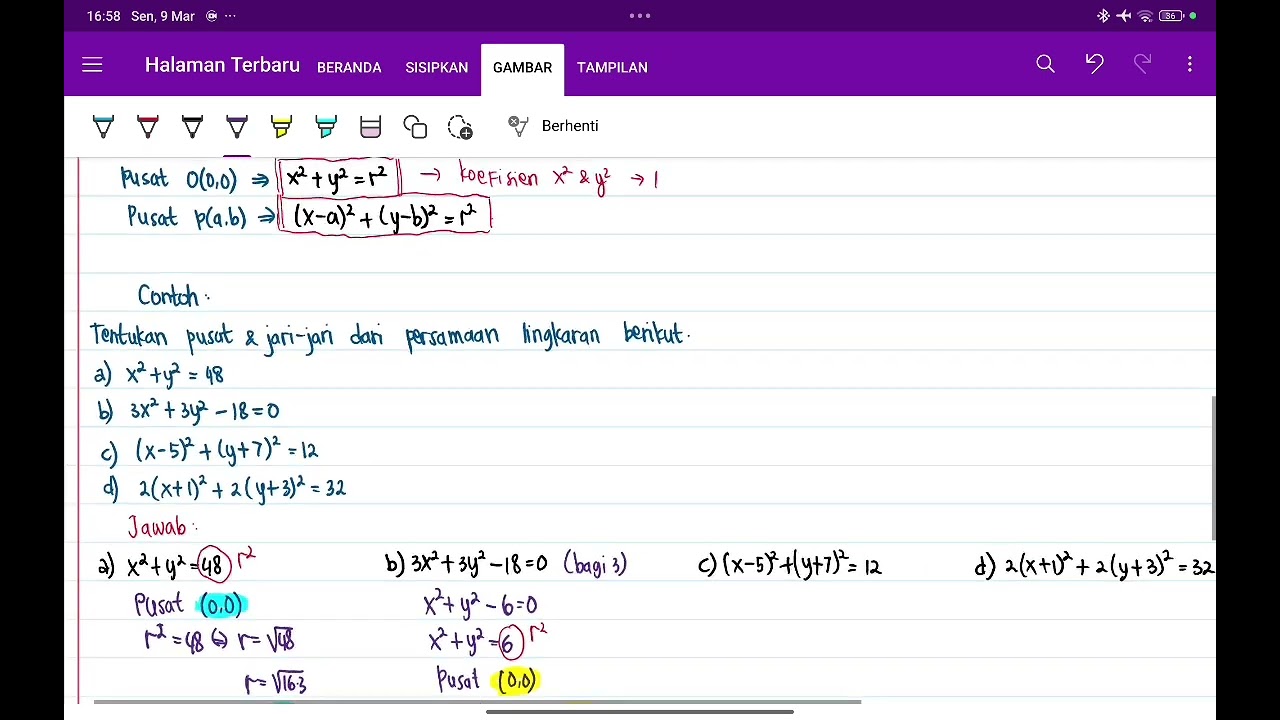 16:58 Sen, 9 Mar
36
Halaman Terbaru BERANDA SISIPKAN GAMBAR TAMPILAN
Berhenti
Pusat O(0,0) ⇒ x² + y² = r² → koefisien x² & y² → 1
Pusat P(a,b) ⇒ (x-a)² + (y-b)² = r²
Contoh :
Tentukan pusat & jari-jari dari persamaan lingkaran berikut.
a) x² + y² = 48
b) 3x² + 3y² - 18 = 0
c) (x-5)² + (y+7)² = 12
d) 2(x+1)² + 2(y+3)² = 32
Jawab :
a) x² + y² = 48 r²
Pusat (0,0)
r² = 48 ⇔ r = √48
r = √16.3
b) 3x² + 3y² - 18 = 0 (bagi 3)
x² + y² - 6 = 0
x² + y² = 6 r²
Pusat (0,0)
c) (x-5)² + (y+7)² = 12
d) 2(x+1)² + 2(y+3)² = 32